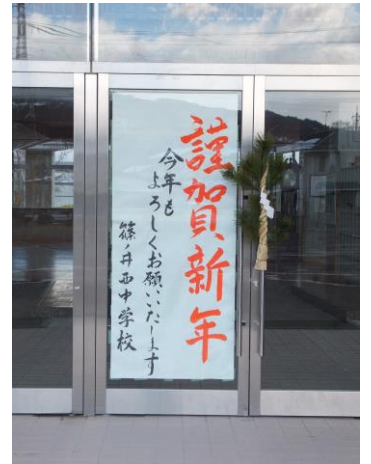 謹賀新年
今年も
よろしくお願いいたします
篠ノ井西中学校